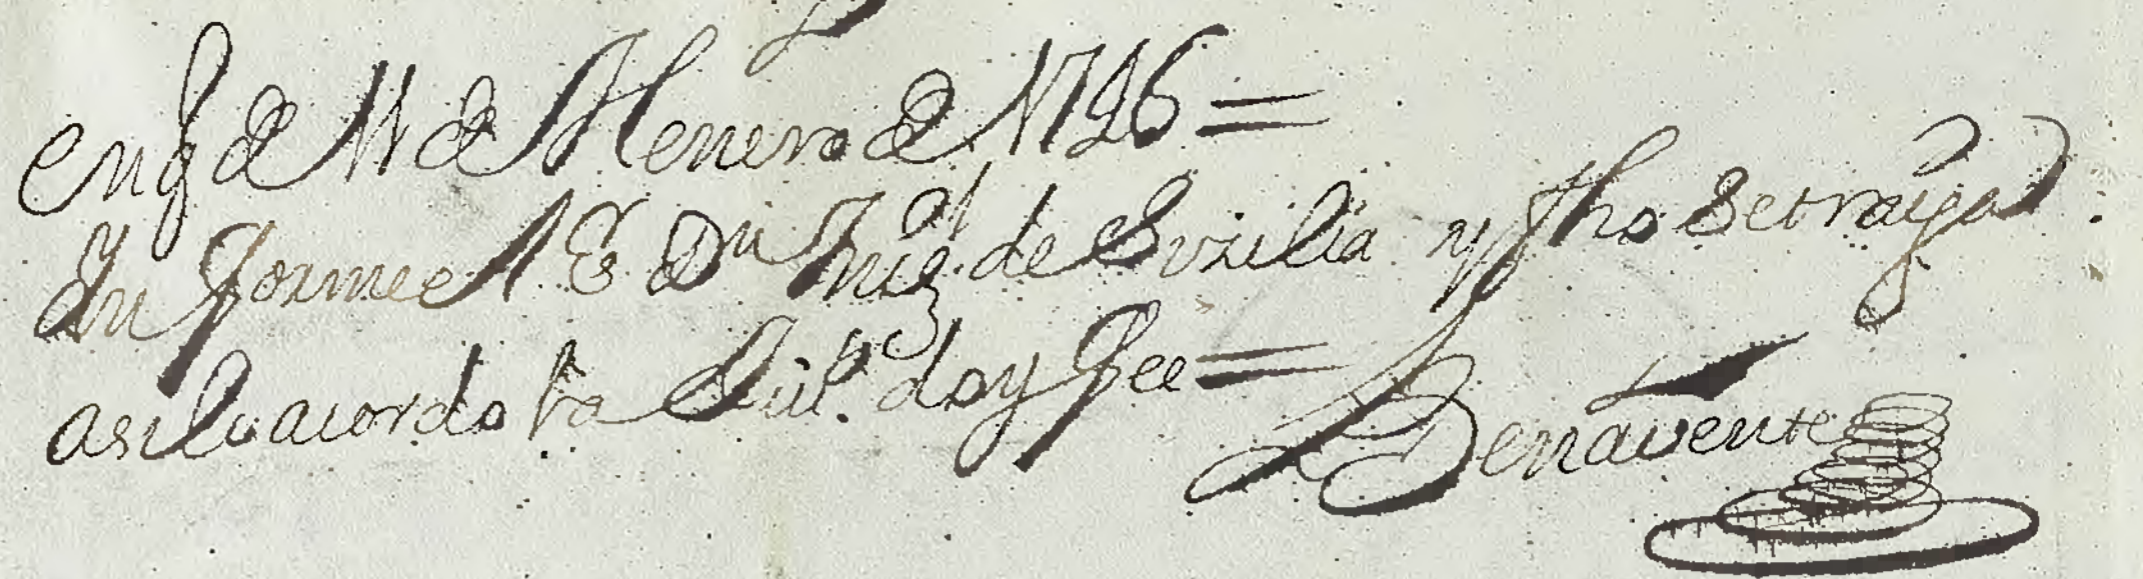 eng de 11 de Henero de 1746 =
Ynforme el Sr Dn Jniz al de Svzilia y fho se trayga
asi lo acordo la Jütª doy fee = Benavente